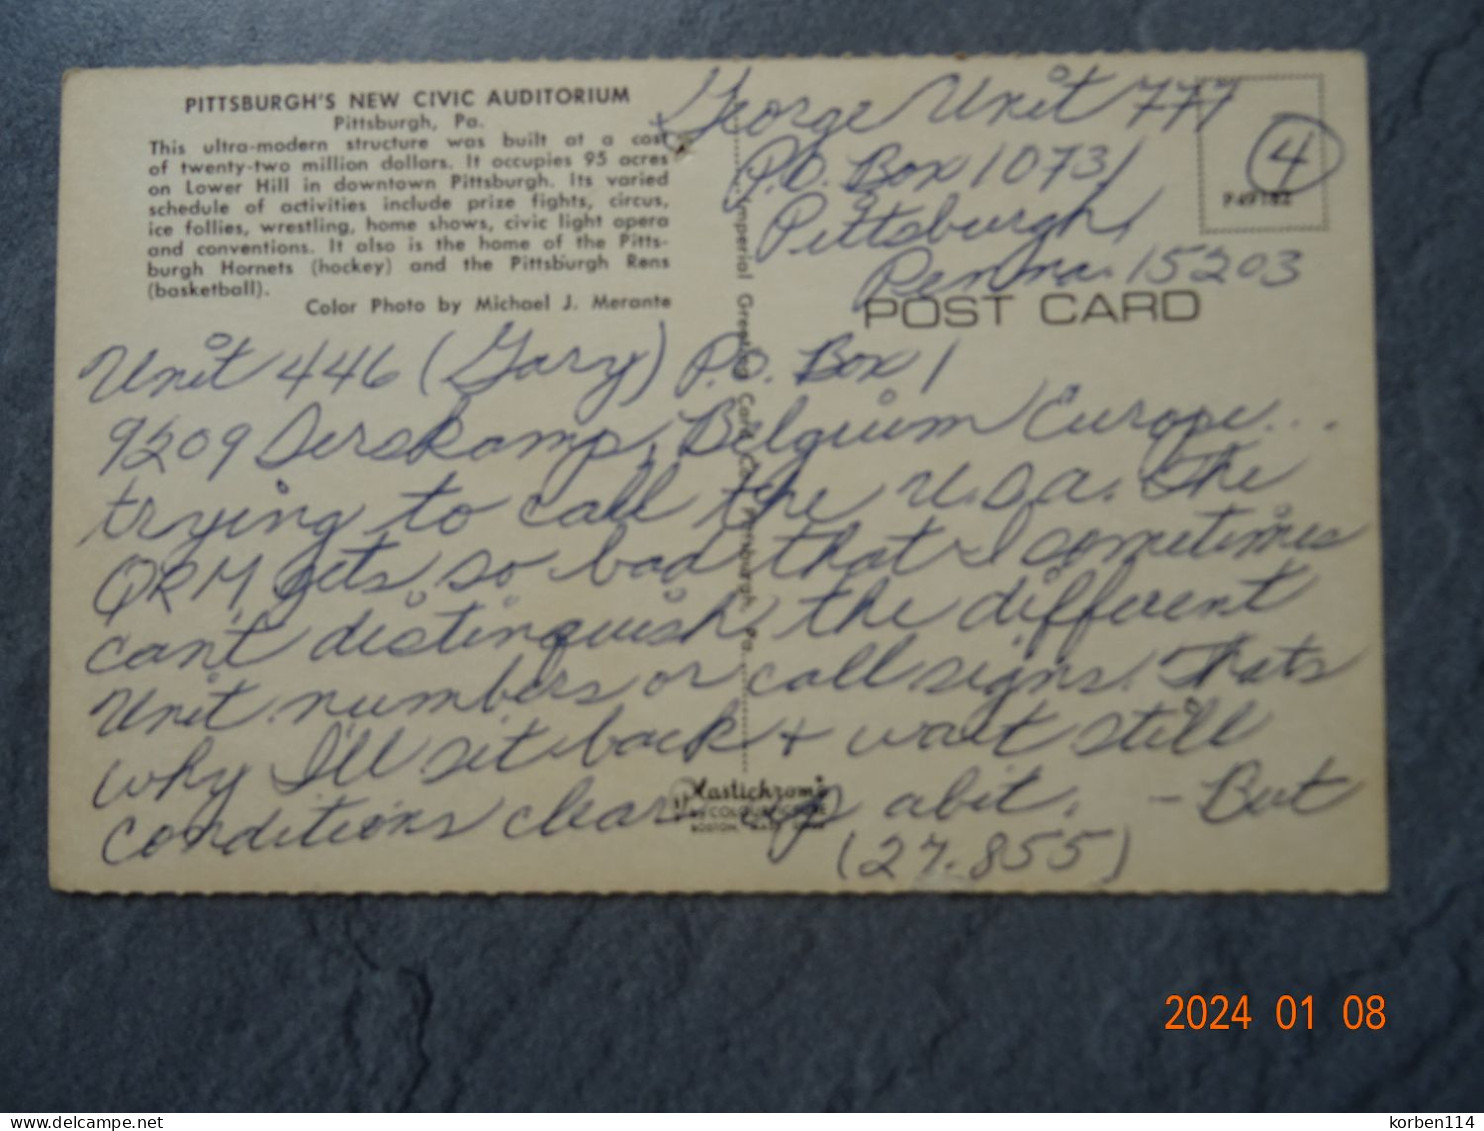 PITTSBURGH'S NEW CIVIC AUDITORIUM
Pittsburgh, Pa.
This ultra-modern structure was built at a cost
of twenty-two million dollars. It occupies 95 acres
on Lower Hill in downtown Pittsburgh. Its varied
schedule of activities include prize fights, circus,
ice follies, wrestling, home shows, civic light opera
and conventions. It also is the home of the Pitts-
burgh Hornets (hockey) and the Pittsburgh Rens
(basketball).
Color Photo by Michael J. Merante
George Unit 777
P.O. Box 1073
Pittsburgh,
Penna. 15203
4
P49182
POST CARD
Imperial Greeting Card Co., Pittsburgh, Pa.
Unit 446 (Gary) P.O. Box 1
9209 Derskamp, Belgium Europe...
trying to call the U.S.A. The
QRM gets so bad that I sometimes
can't distinguish the different
Unit numbers or call signs. Thats
why I'll sit back + wait still
conditions clear up abit. - But
(27.855)
Plastichrome
BY COLOURPICTURE
BOSTON, MASS.
2024 01 08
delcampe.net
korben114